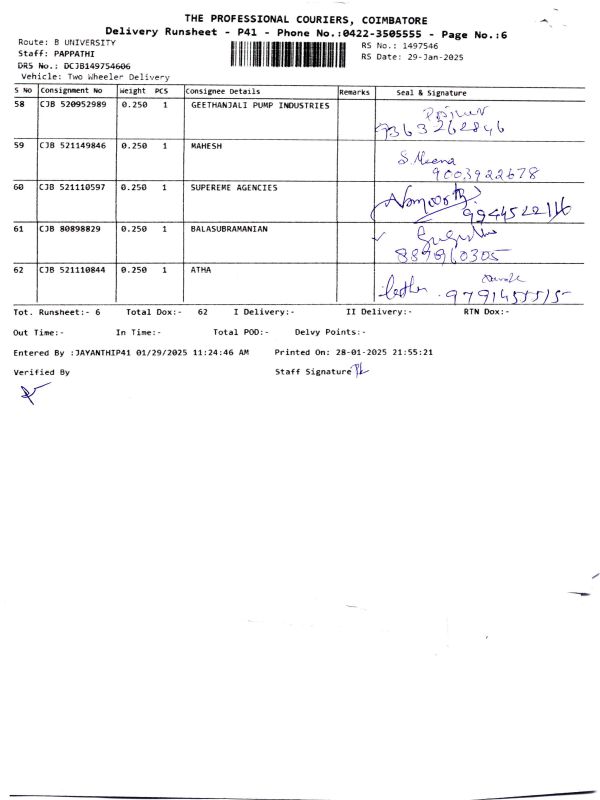 THE PROFESSIONAL COURIERS, COIMBATORE
Delivery Runsheet - P41 - Phone No.:0422-3505555 - Page No.:6
Route: B UNIVERSITY
Staff: PAPPATHI
DRS No.: DCJB149754606
Vehicle: Two Wheeler Delivery
RS No.: 1497546
RS Date: 29-Jan-2025
S No Consignment No Weight PCS Consignee Details Remarks Seal & Signature
58 CJB 520952989 0.250 1 GEETHANJALI PUMP INDUSTRIES
7363262846
59 CJB 521149846 0.250 1 MAHESH
S. Meena
9003922678
60 CJB 521110597 0.250 1 SUPEREME AGENCIES
9944522116
61 CJB 80898829 0.250 1 BALASUBRAMANIAN
62 CJB 521110844 0.250 1 ATHA
Tot. Runsheet:- 6 Total Dox:- 62 I Delivery:- II Delivery:- RTN Dox:-
Out Time:- In Time:- Total POD:- Delvy Points:-
Entered By :JAYANTHIP41 01/29/2025 11:24:46 AM Printed On: 28-01-2025 21:55:21
Verified By Staff Signature